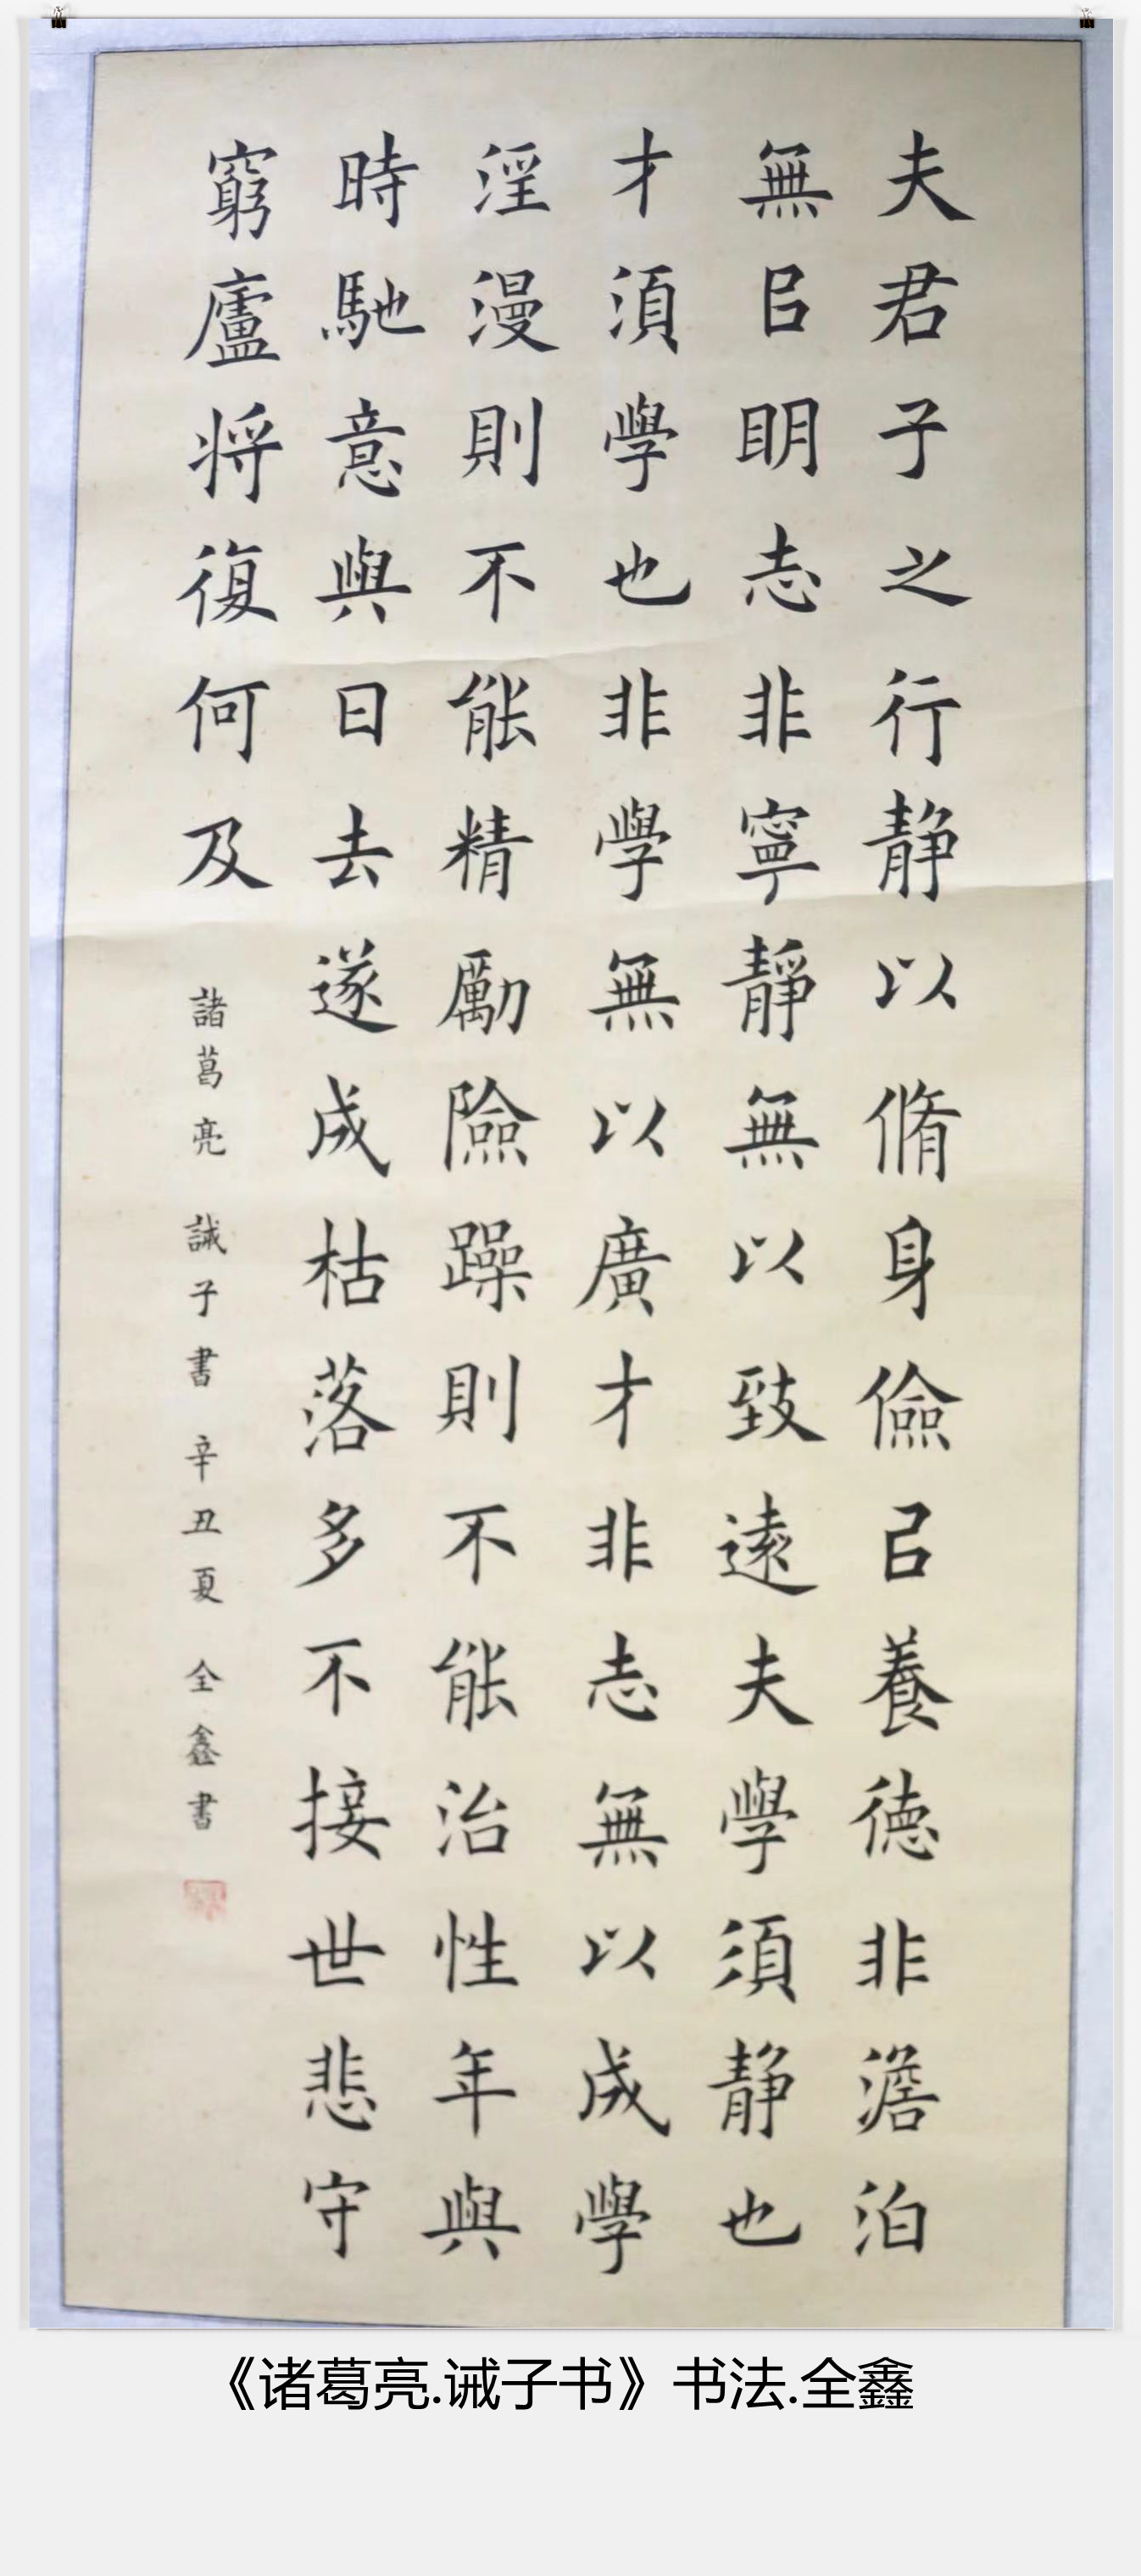 夫君子之行静以脩身儉㠯養德非澹泊
無㠯明志非寧靜無以致遠夫學須静也
才須學也非學無以廣才非志無以成學
淫漫則不能精勵險躁則不能治性年與
時馳意與日去遂成枯落多不接世悲守
窮廬将復何及
諸葛亮 誡子書 辛丑夏 全鑫書
《诸葛亮.诫子书》书法.全鑫